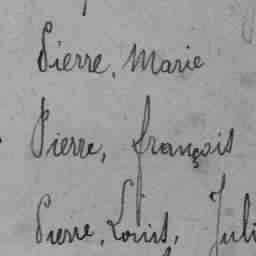 Pierre, Marie
Pierre, françois
Pierre, Louis, Juli